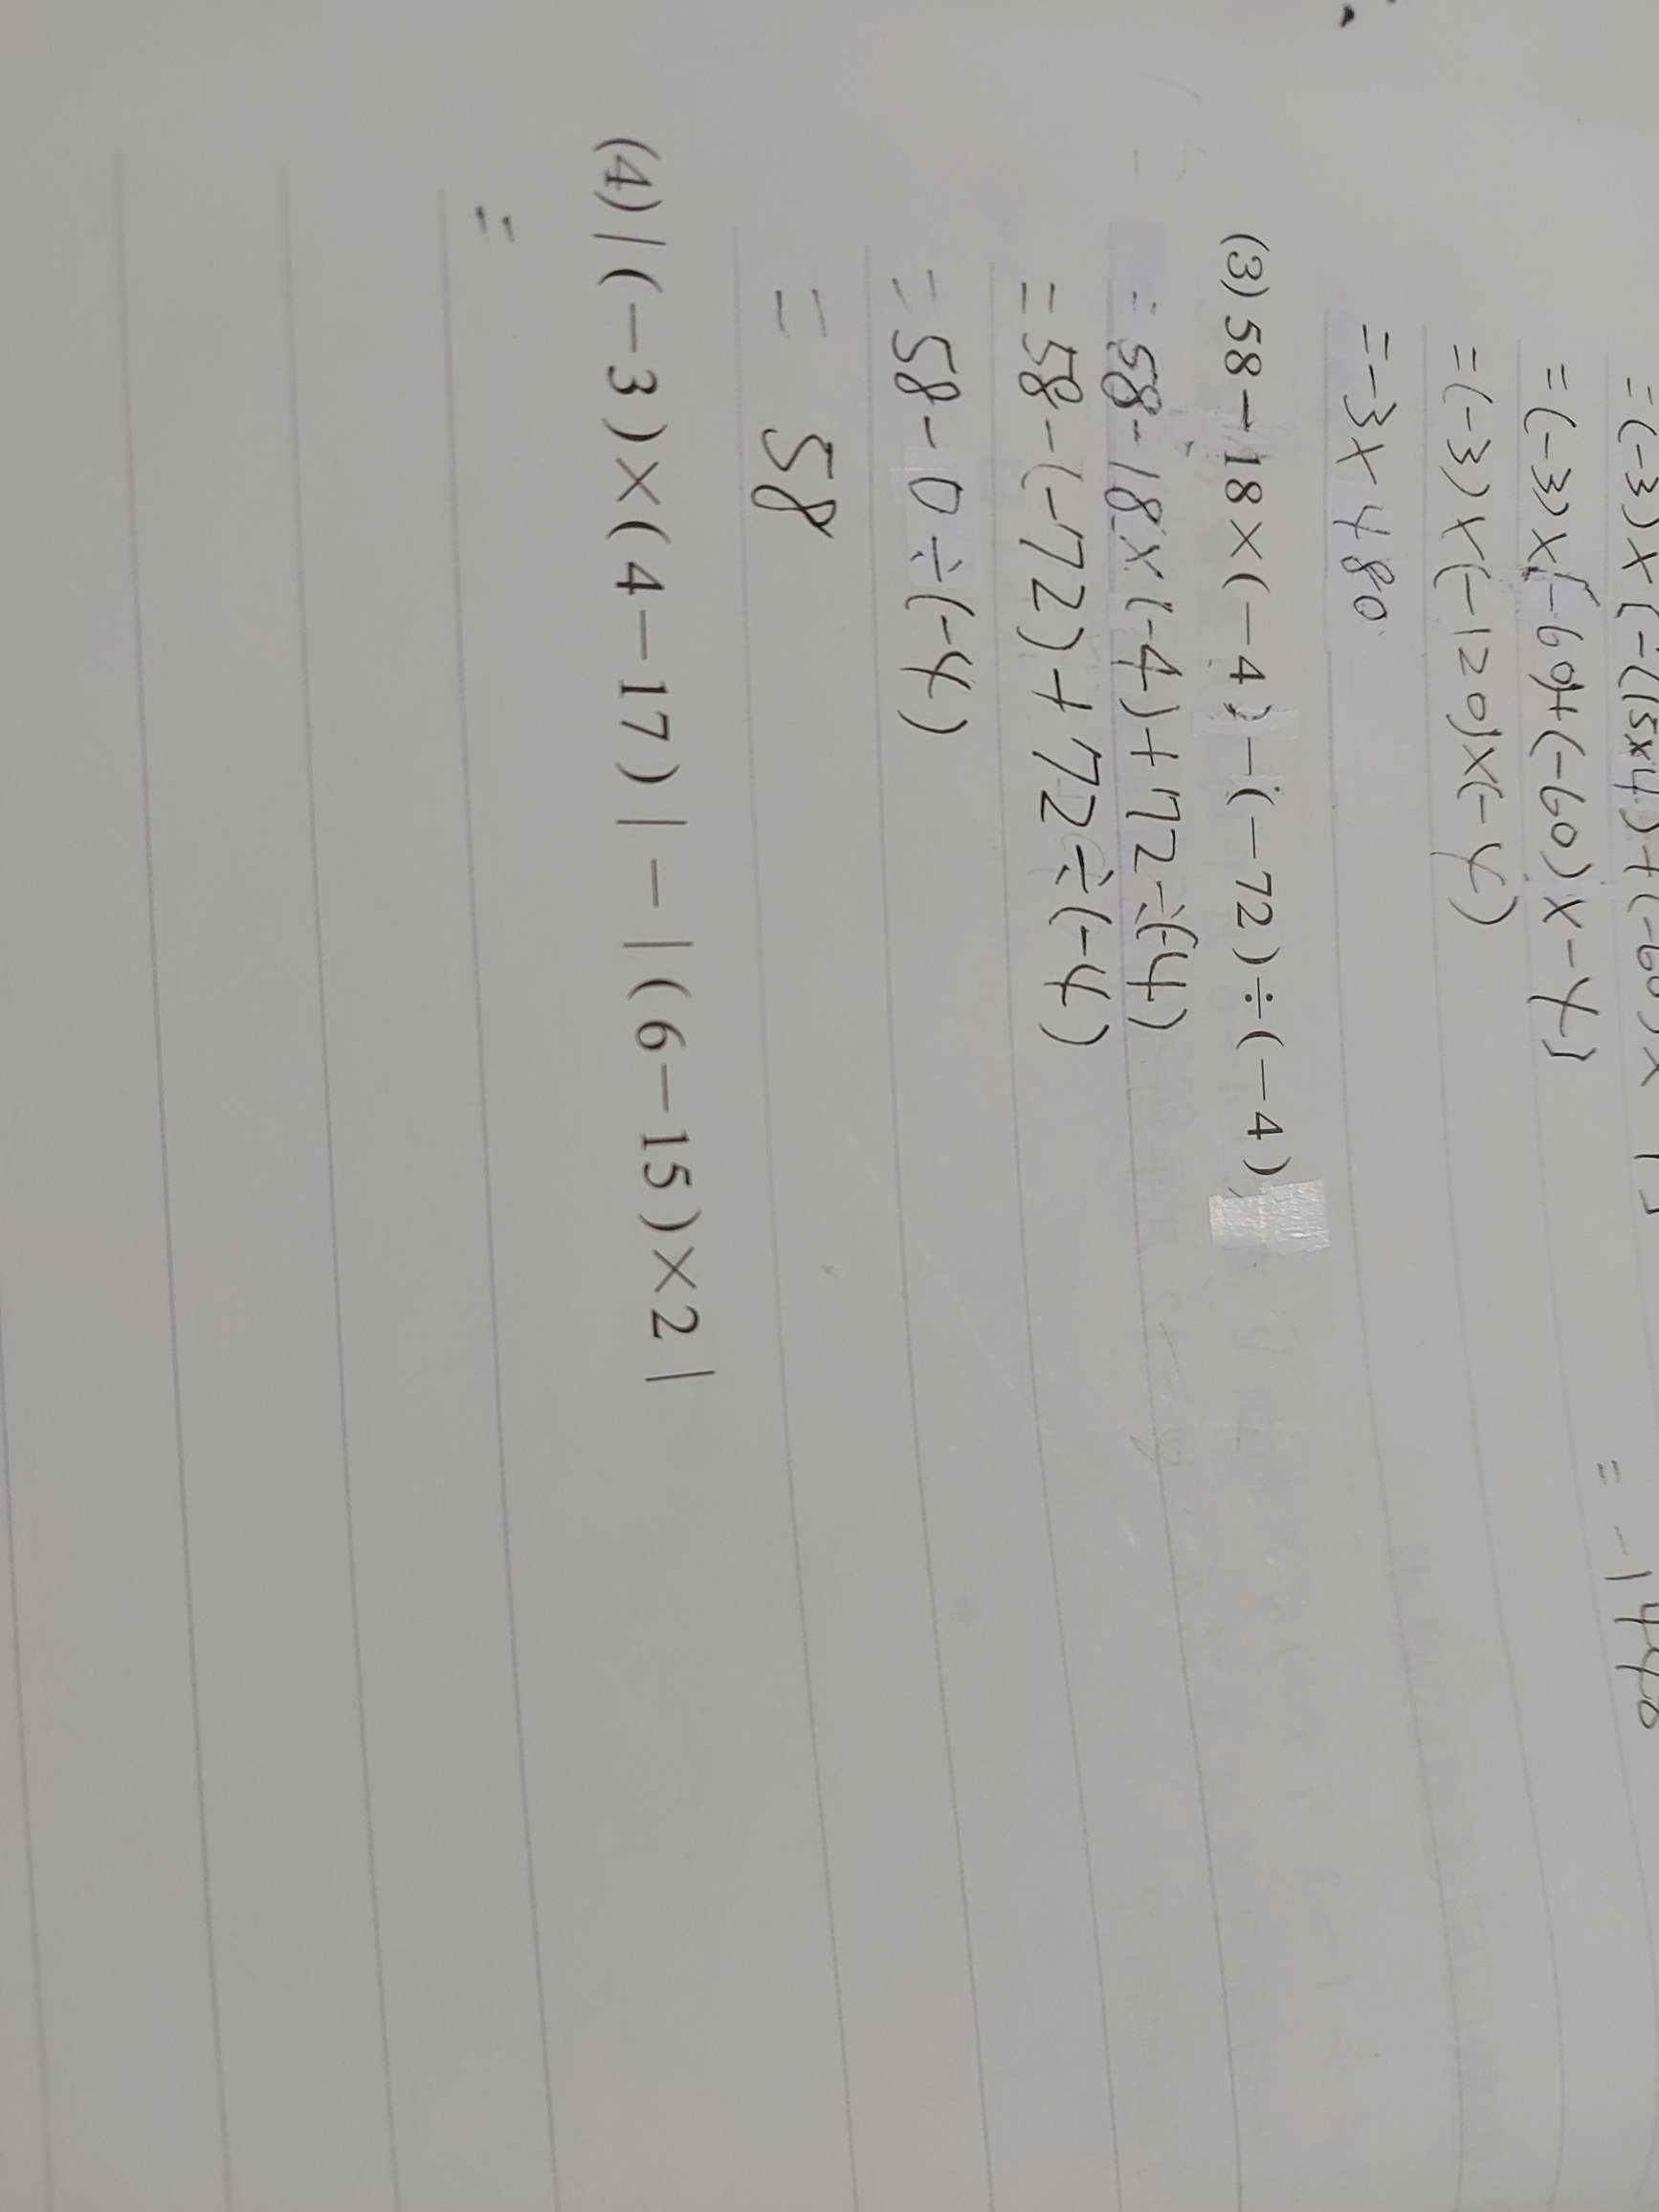 =(-3)×(-(15×4)+(-60)×
=(-3)×(-60)+(-60)×-4}
=(-3)×(-120)×(-4)
=-3×480
= -1440
(3) 58-18×(-4)-(-72)÷(-4)
=58-18×(-4)+72÷(-4)
=58-(-72)+72÷(-4)
=58-0÷(-4)
= 58
(4) |(-3)×(4-17)|-|(6-15)×2|
=